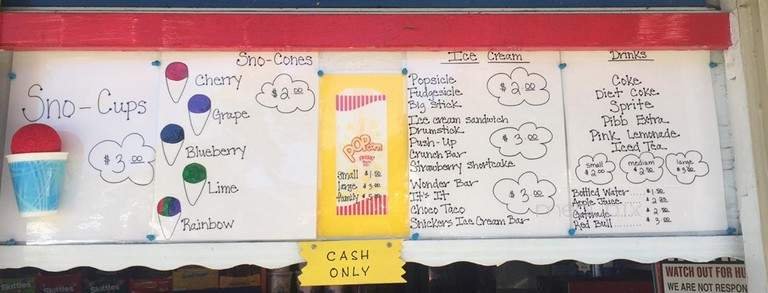 Sno-Cups
$3.00
Sno-Cones
Cherry
$2.00
Grape
Blueberry
Lime
Rainbow
POP
Corn
small $1.00
large
family
CASH
ONLY
Ice Cream
Popsicle
Fudgesicle
Big Stick
$2.00
Ice cream sandwich
Drumstick
Push-Up
Crunch Bar
Strawberry shortcake
$3.00
Wonder Bar
It's It
Choco Taco
Snickers Ice Cream Bar
$3.00
Drinks
Coke
Diet Coke
Sprite
Pibb Extra
Pink Lemonade
Iced Tea
small
$2.00
medium
large
Bottled Water
Apple Juice
Gatorade
Red Bull
Skittles
Skittles
Skittles
WATCH OUT FOR HU
WE ARE NOT RESPON